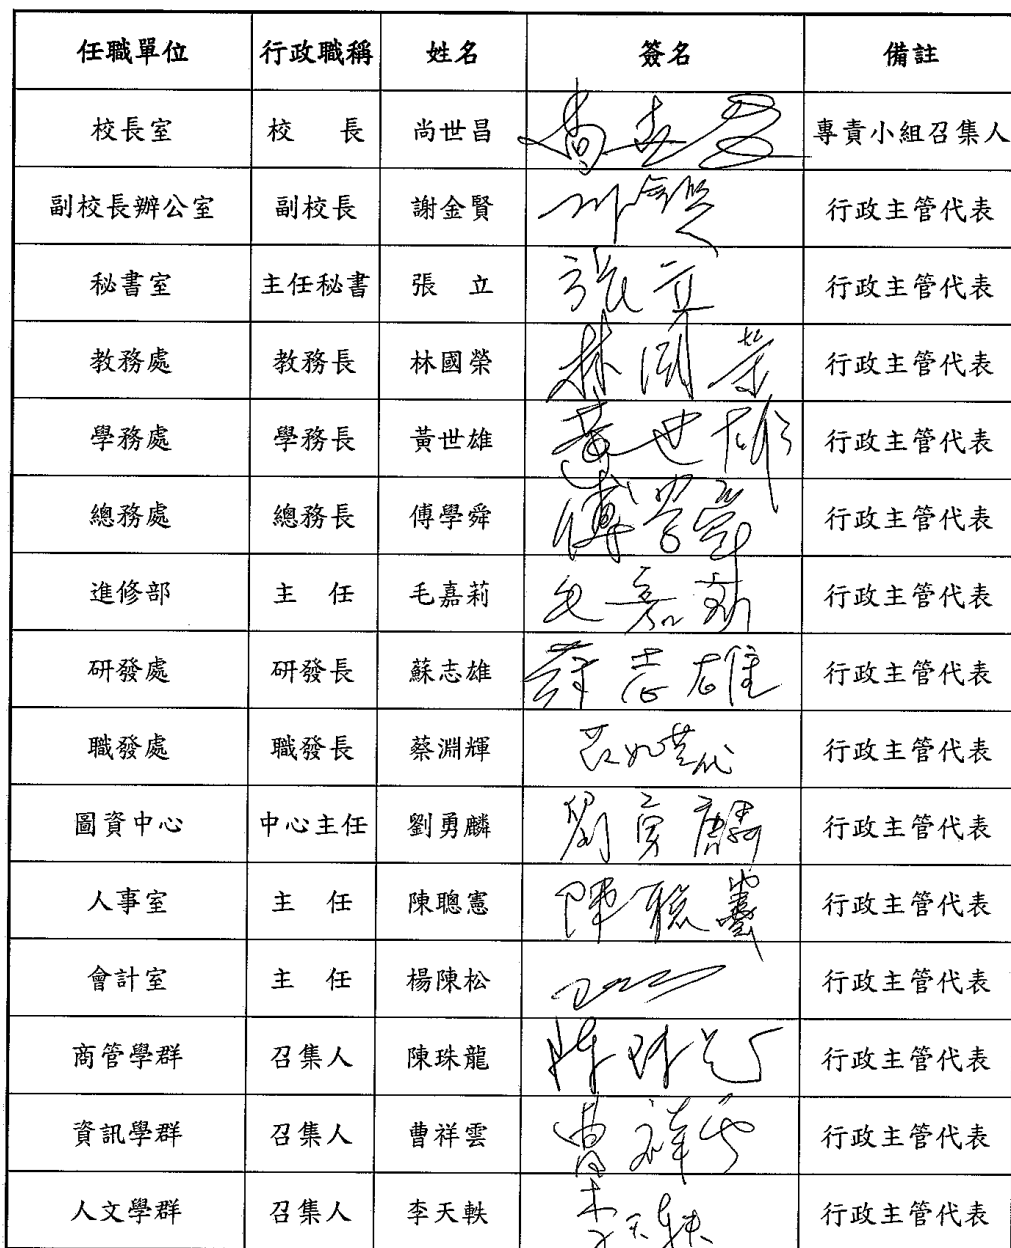 任職單位 行政職稱 姓名 簽名 備註
校長室 校 長 尚世昌 尚世昌 專責小組召集人
副校長辦公室 副校長 謝金賢 行政主管代表
秘書室 主任秘書 張 立 張立 行政主管代表
教務處 教務長 林國榮 林國榮 行政主管代表
學務處 學務長 黃世雄 黃世雄 行政主管代表
總務處 總務長 傅學舜 傅學舜 行政主管代表
進修部 主 任 毛嘉莉 毛嘉莉 行政主管代表
研發處 研發長 蘇志雄 蘇志雄 行政主管代表
職發處 職發長 蔡淵輝 行政主管代表
圖資中心 中心主任 劉勇麟 劉勇麟 行政主管代表
人事室 主 任 陳聰憲 陳聰憲 行政主管代表
會計室 主 任 楊陳松 行政主管代表
商管學群 召集人 陳珠龍 陳珠龍 行政主管代表
資訊學群 召集人 曹祥雲 曹祥雲 行政主管代表
人文學群 召集人 李天軼 李天軼 行政主管代表